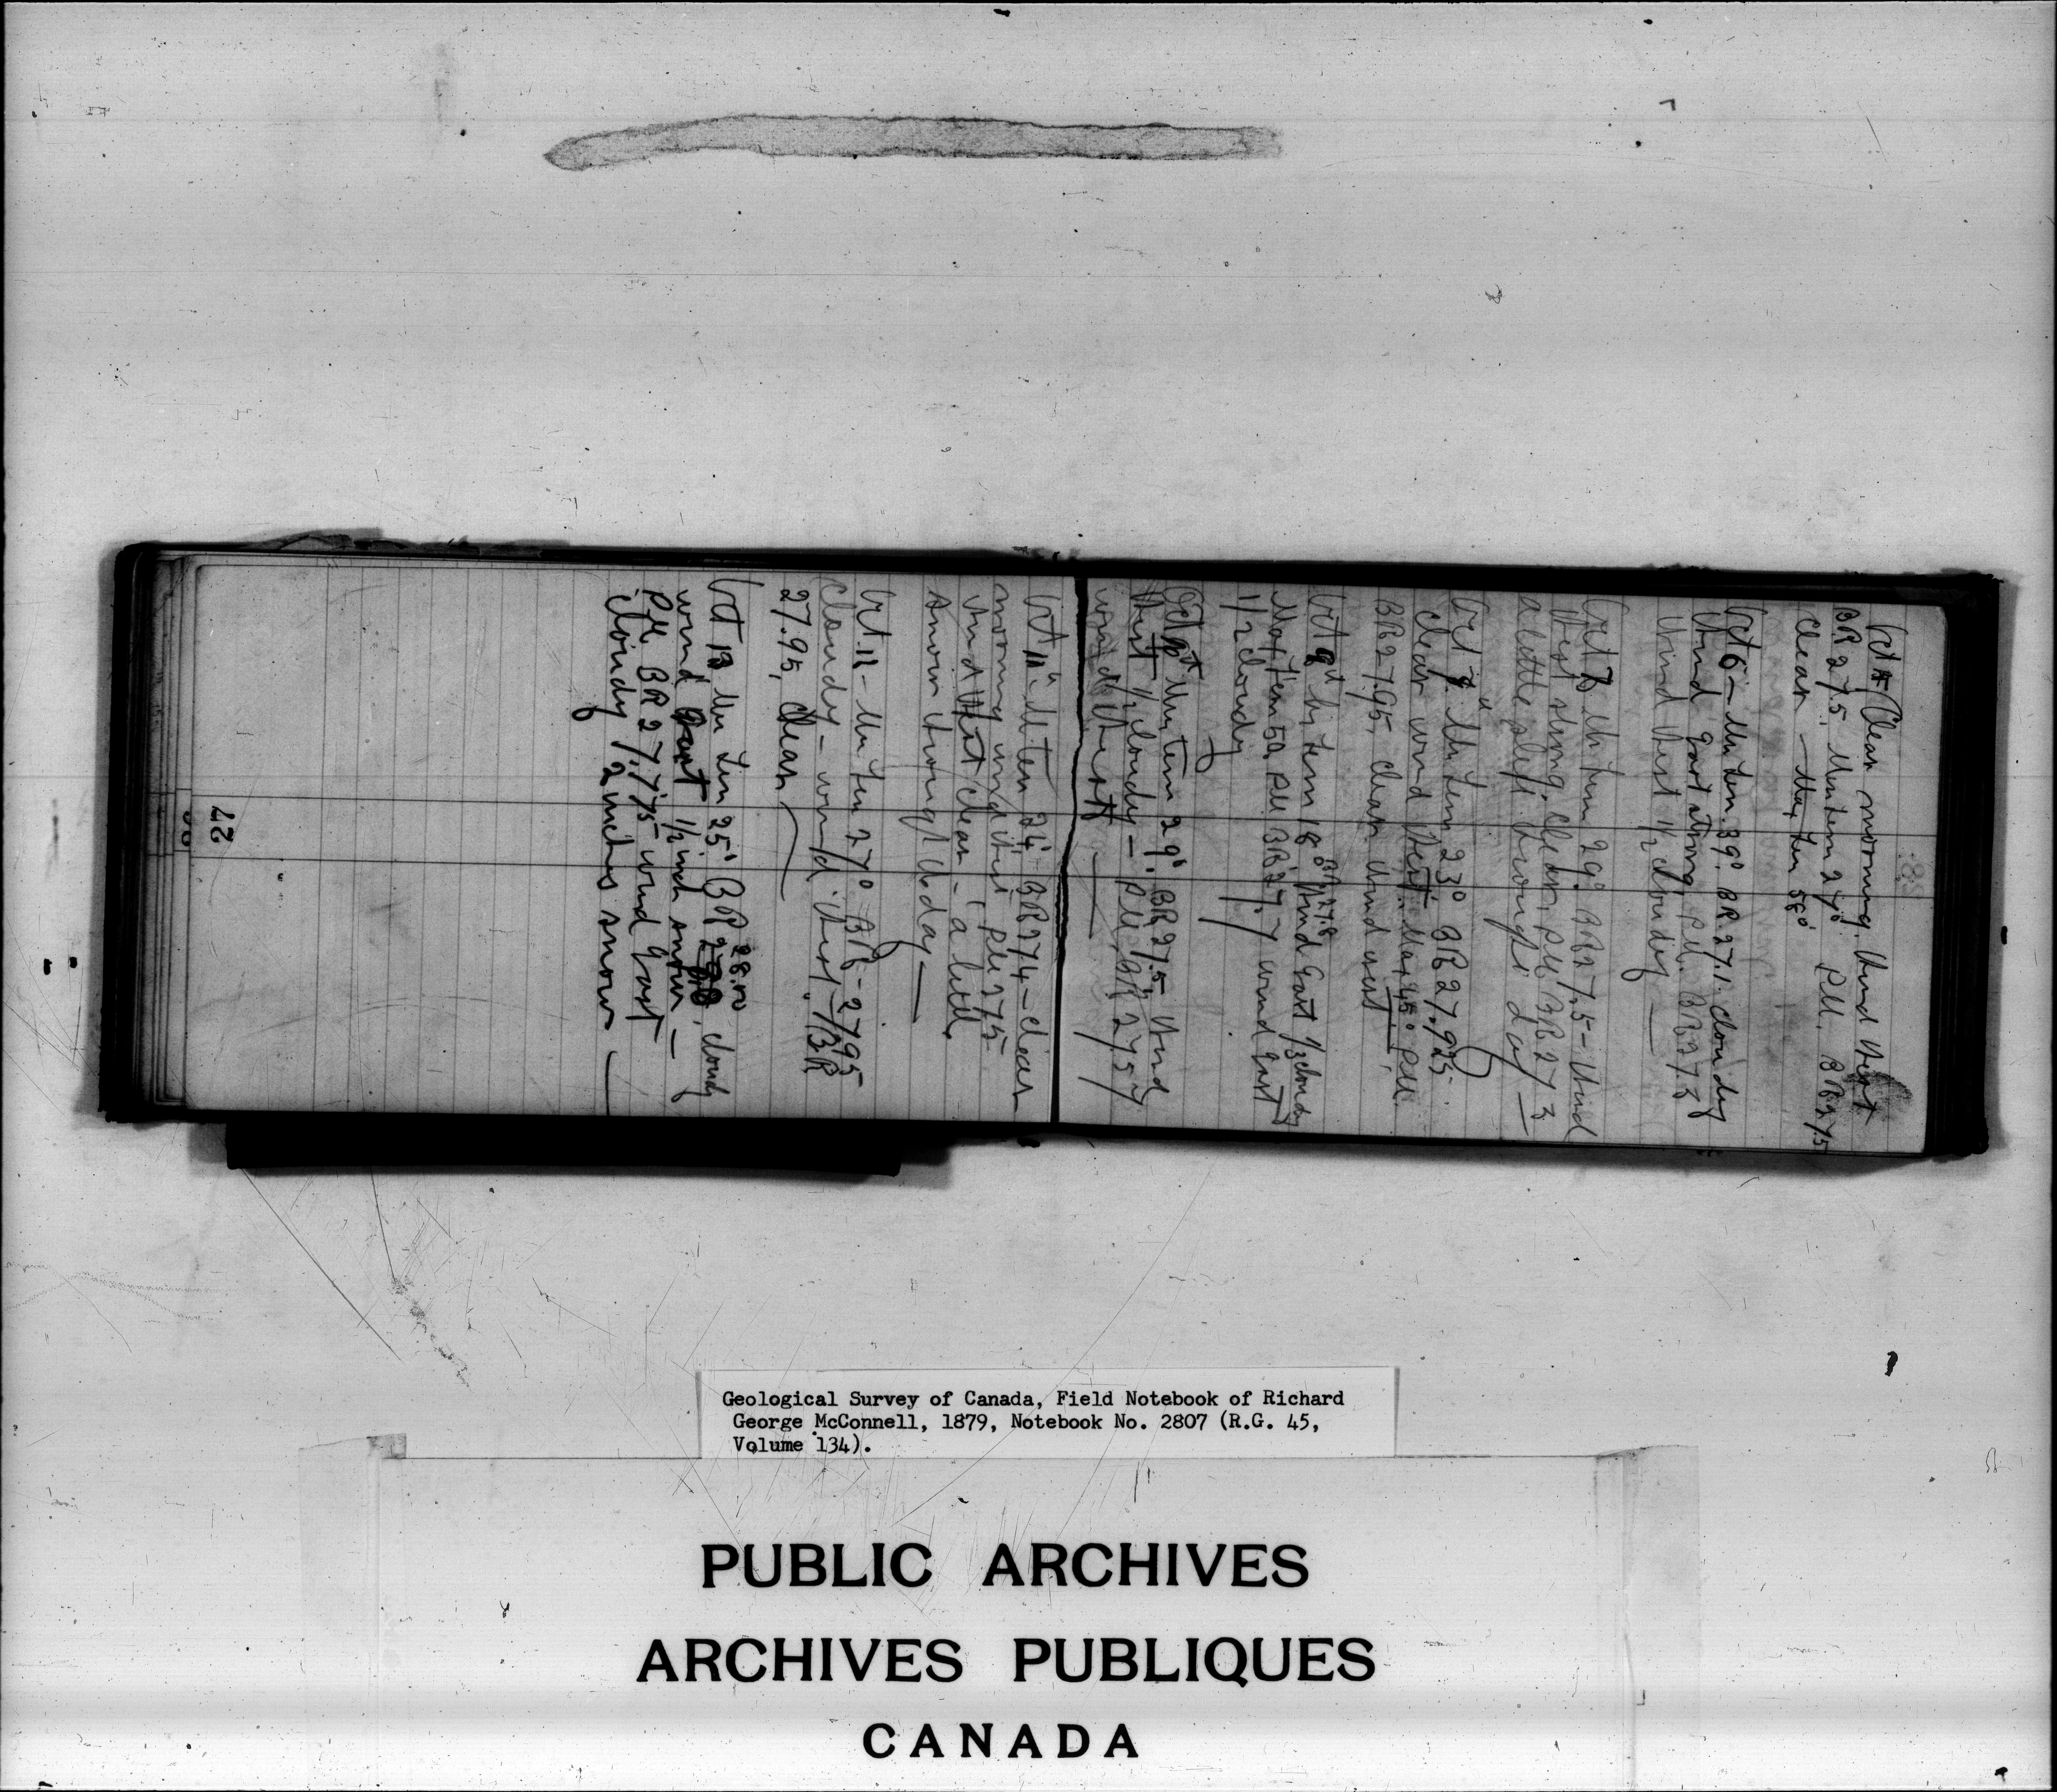 Oct 5 Clear morning. Wind West
BR 27.5, Min tem 27° P.M. BR 27.5
Clear — Max tem 58°
Oct 6 — Min tem. 39° BR. 27.1. Cloudy
Wind East strong, P.M. BR 27.3
Wind West 1/2 cloudy —
Oct 7 Min tem 29° BR 27.5 - Wind
West strong. Clear, P.M. BR 27 3
a little sleft through day —
Oct 8 Min tem 23° BR 27.925
Clear wind West. Max 45° P.M.
BR 27.95, Clear Wind west
Oct 9th Min tem 18° BR 27.8 Wind East 1/3 cloudy
Max tem 50, P.M. BR 27.7 wind East
1/2 cloudy
Oct 10th Min tem 29°. BR 27.5, Wind
West 1/2 cloudy — P.M, BR 27 57
wind West —
Oct 11th Min tem 24° BR 27 4 — clear
morning wind West P.M 27 5
Wind West clear — a little
snow through the day —
Oct 12 — Min tem 27° BR - 27 95
Cloudy — wind West, BR
27.95, Clear
Oct 13 Min tem 25° BR 28.00, cloudy
wind East 1/2 inch snow —
P.M. BR 27.775 — wind East
cloudy 2 inches snow —
27
Geological Survey of Canada, Field Notebook of Richard
George McConnell, 1879, Notebook No. 2807 (R.G. 45,
Volume 134).
PUBLIC ARCHIVES
ARCHIVES PUBLIQUES
CANADA